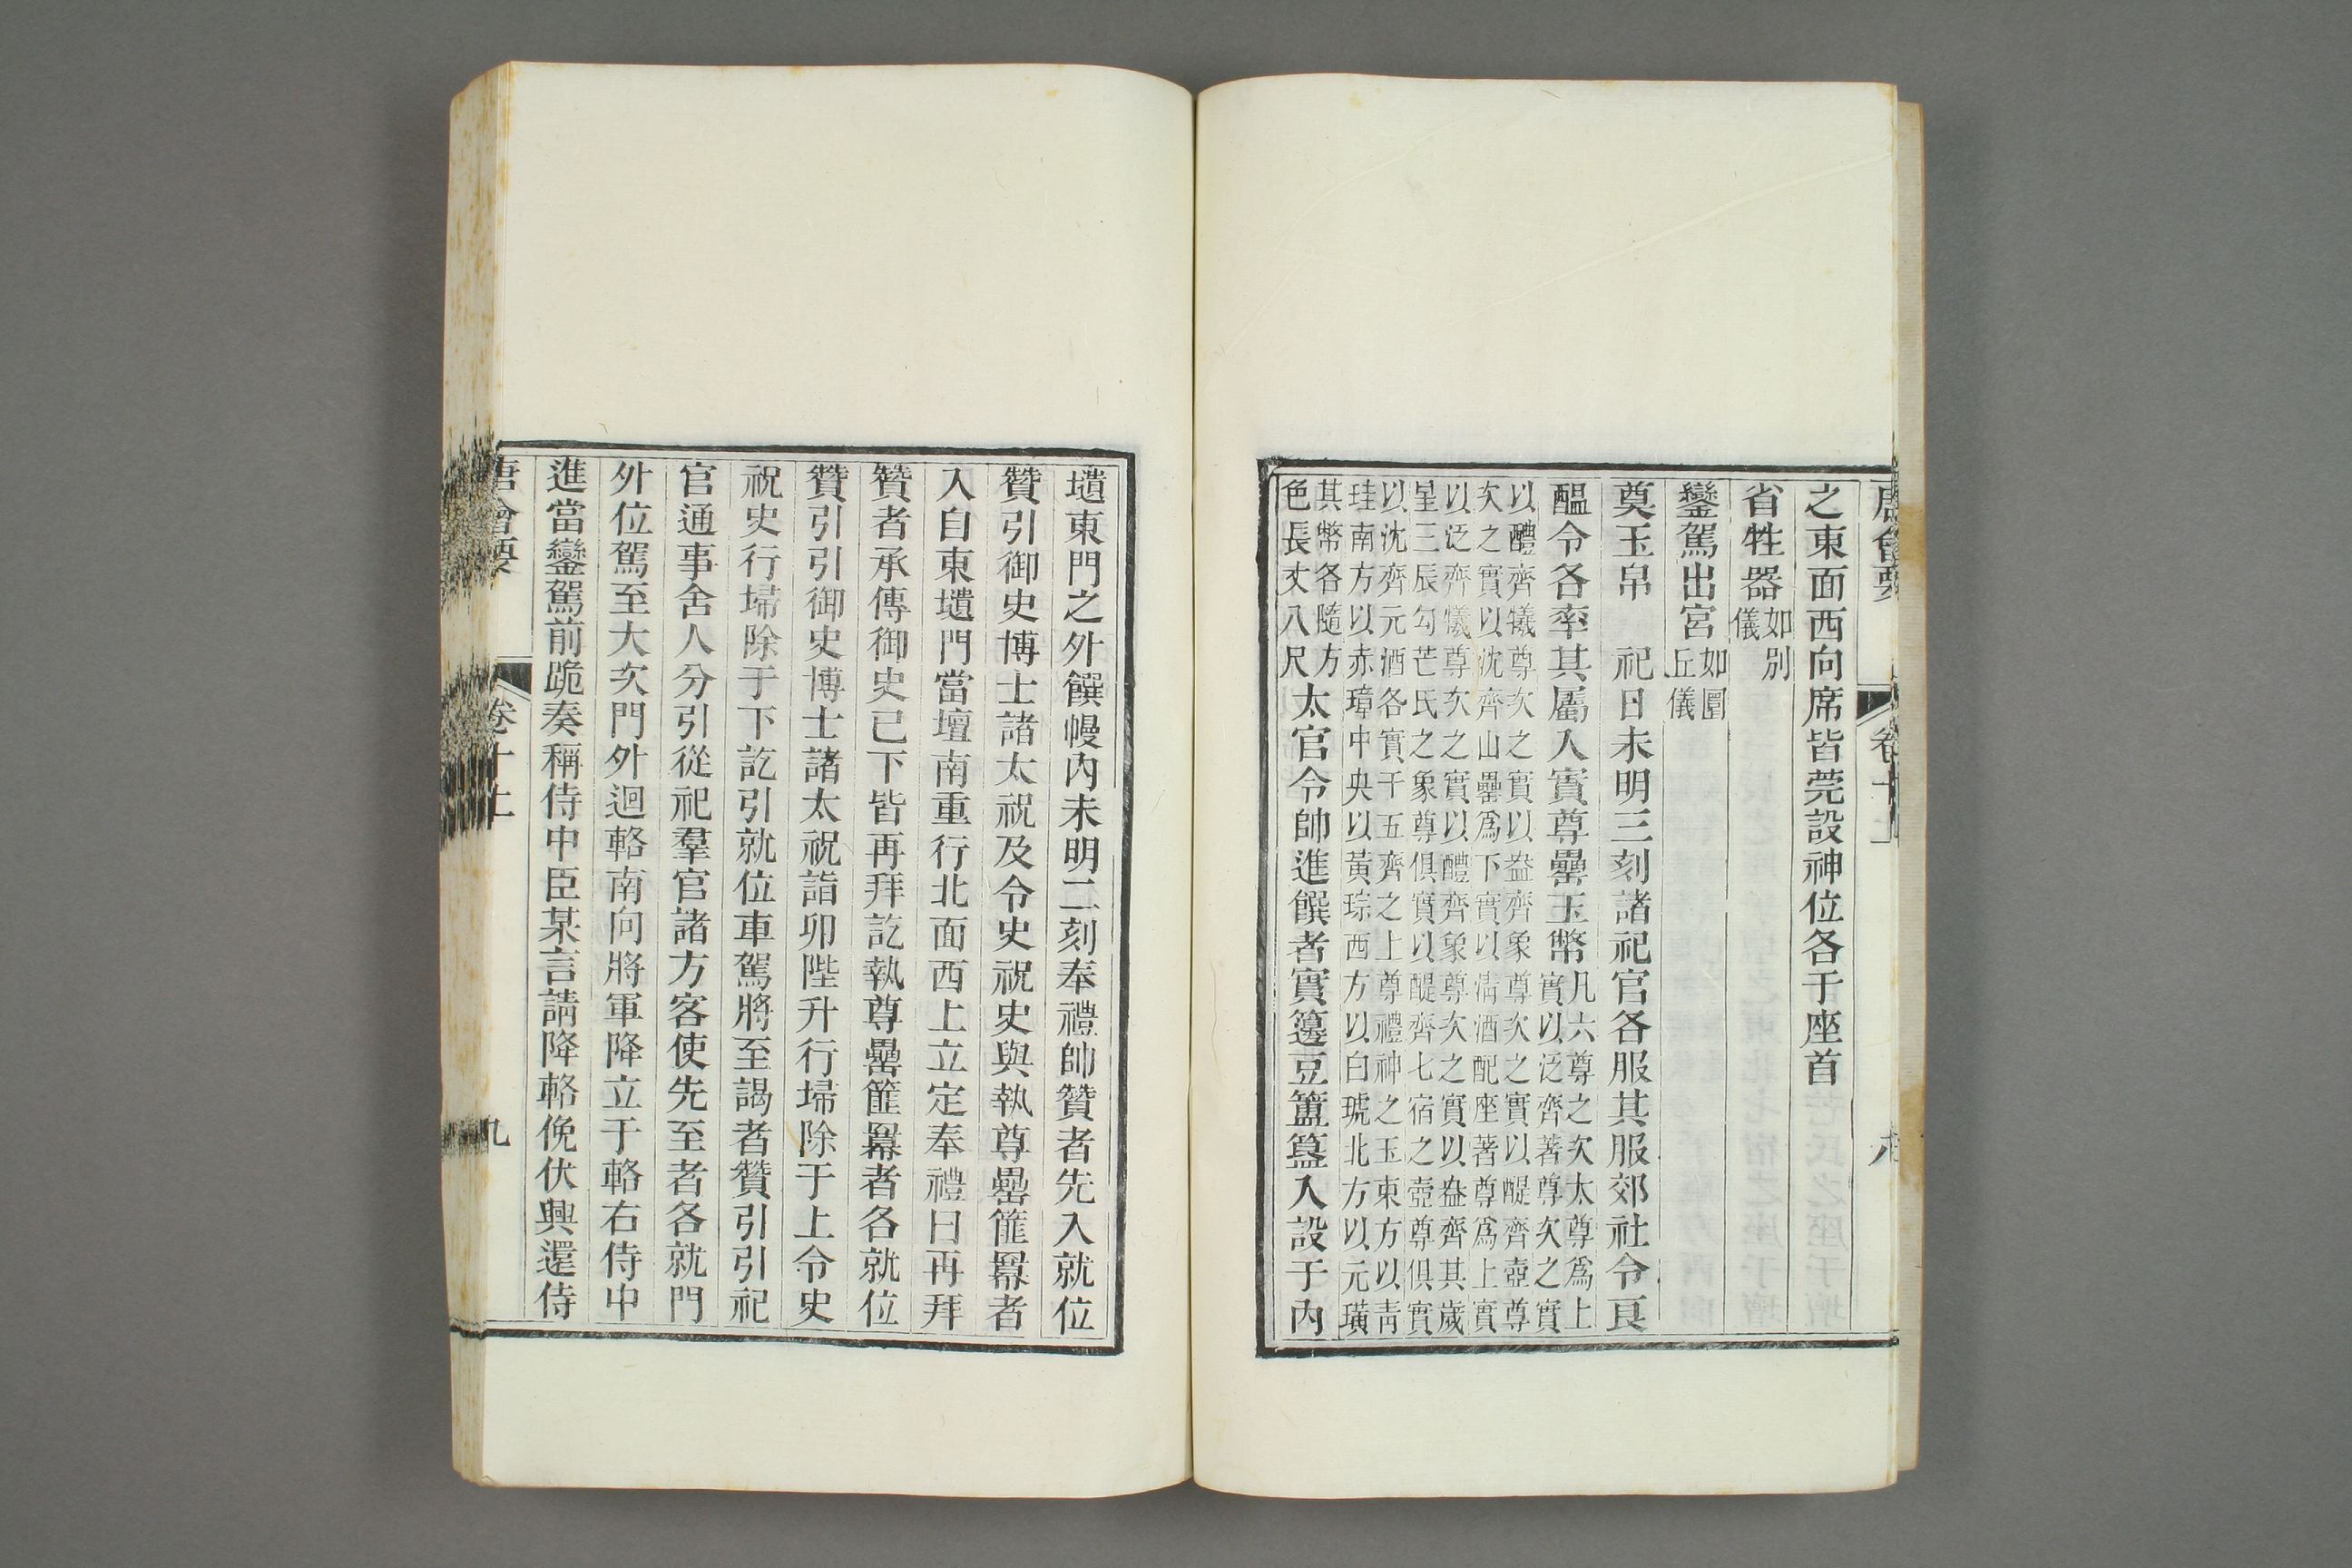 唐會要 卷十上 八
之東面西向席皆莞設神位各于座首
省牲器如別儀
鑾駕出宮如圜丘儀
奠玉帛 祀日未明三刻諸祀官各服其服郊社令良
醞令各率其屬入實尊罍玉幣凡六尊之次太尊爲上
實以泛齊著尊次之實
以醴齊犧尊次之實以盎齊象尊次之實以醍齊壺尊
次之實以沈齊山罍爲下實以清酒配座著尊爲上實
以泛齊犧尊次之實以醴齊象尊次之實以盎齊其歲
星三辰勾芒氏之象尊俱實以醍齊七宿之壺尊俱實
以沈齊元酒各實于五齊之上尊禮神之玉東方以青
珪南方以赤璋中央以黃琮西方以白琥北方以元璜
其幣各隨方
色長丈八尺太官令帥進饌者實籩豆簠簋入設于內
壝東門之外饌幔內未明二刻奉禮帥贊者先入就位
贊引御史博士諸太祝及令史祝史與執尊罍篚羃者
入自東壝門當壇南重行北面西上立定奉禮曰再拜
贊者承傳御史已下皆再拜訖執尊罍篚羃者各就位
贊引引御史博士諸太祝詣卯陛升行埽除于上令史
祝史行埽除于下訖引就位車駕將至謁者贊引引祀
官通事舍人分引從祀羣官諸方客使先至者各就門
外位駕至大次門外迴輅南向將軍降立于輅右侍中
進當鑾駕前跪奏稱侍中臣某言請降輅俛伏興還侍
唐會要 卷十上 九